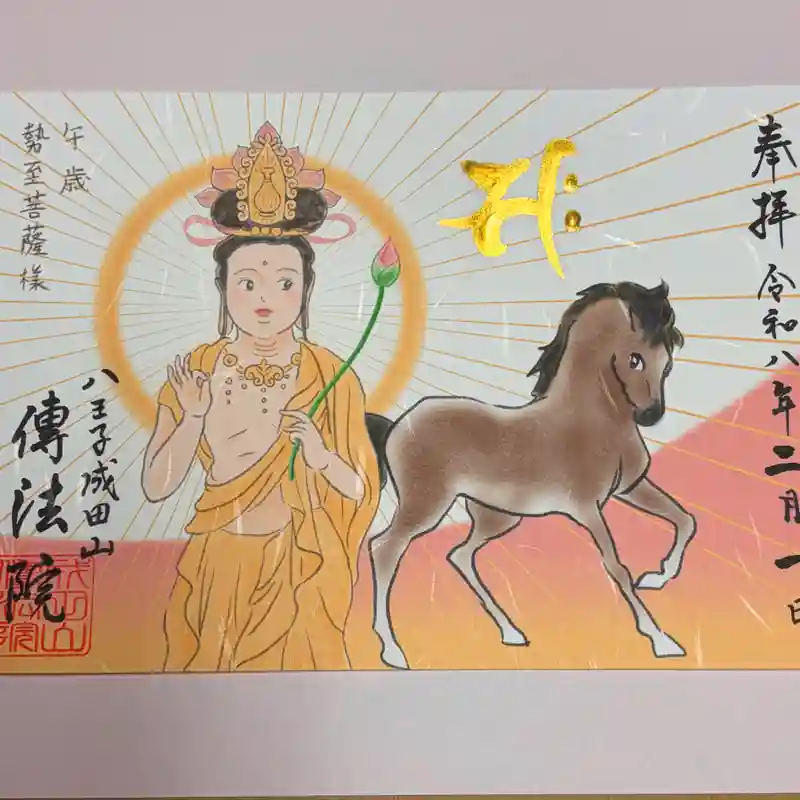 奉拝
令和八年二月一日
サク
午歳
勢至菩薩様
八王子成田山
傳法院